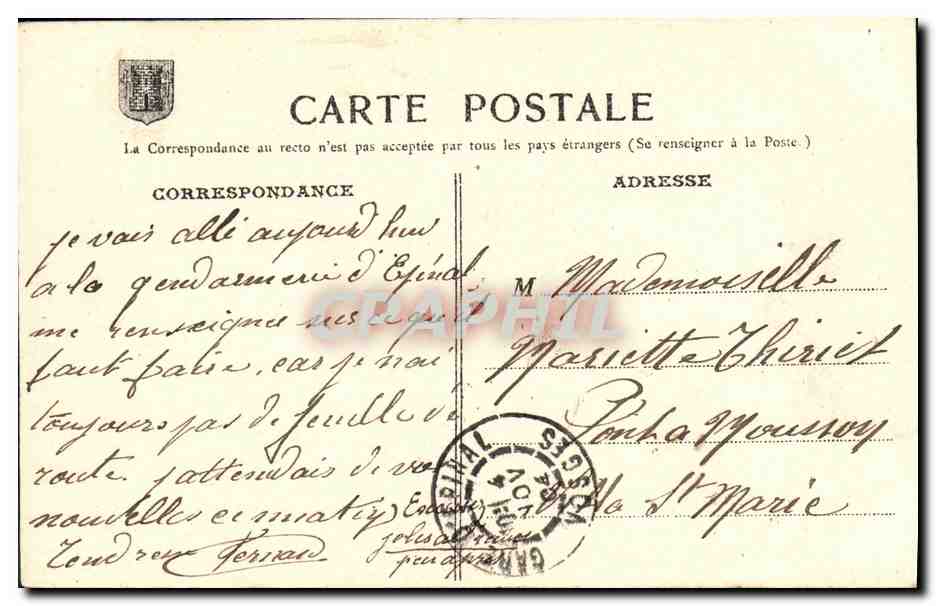 CARTE POSTALE
La Correspondance au recto n'est pas acceptée par tous les pays étrangers (Se renseigner à la Poste.)
CORRESPONDANCE
je vais allé aujourd hui
a la gendarmerie d'Epinal
me renseigner sur ce qu'il
faut faire, car je n'ai
toujours pas de feuille de
route j'attendais de vos
nouvelles ce matin
Tendresse Fernand
ADRESSE
M Mademoiselle
Mariette Thiriet
Pont a Mousson
Villa St Marie
GARE EPINAL VOSGES
CPAPHIL